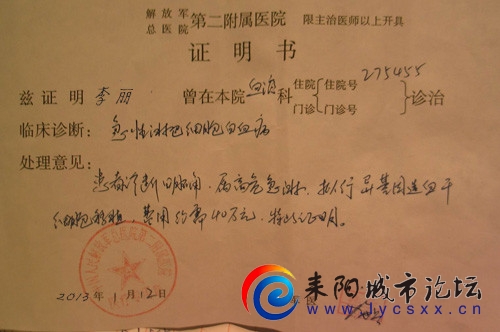 解放军总医院 第二附属医院 限主治医师以上开具
证明书
兹证明 李丽 曾在本院 血液 科 住院 门诊 住院号 门诊号 275455 诊治
临床诊断: 急性淋巴细胞白血病
处理意见:
患者诊断明确, 属高危急淋, 拟行异基因造血干
细胞移植, 费用约需40万元, 特此证明。
2013年1月12日
耒阳城市论坛
www.lycsxx.cn